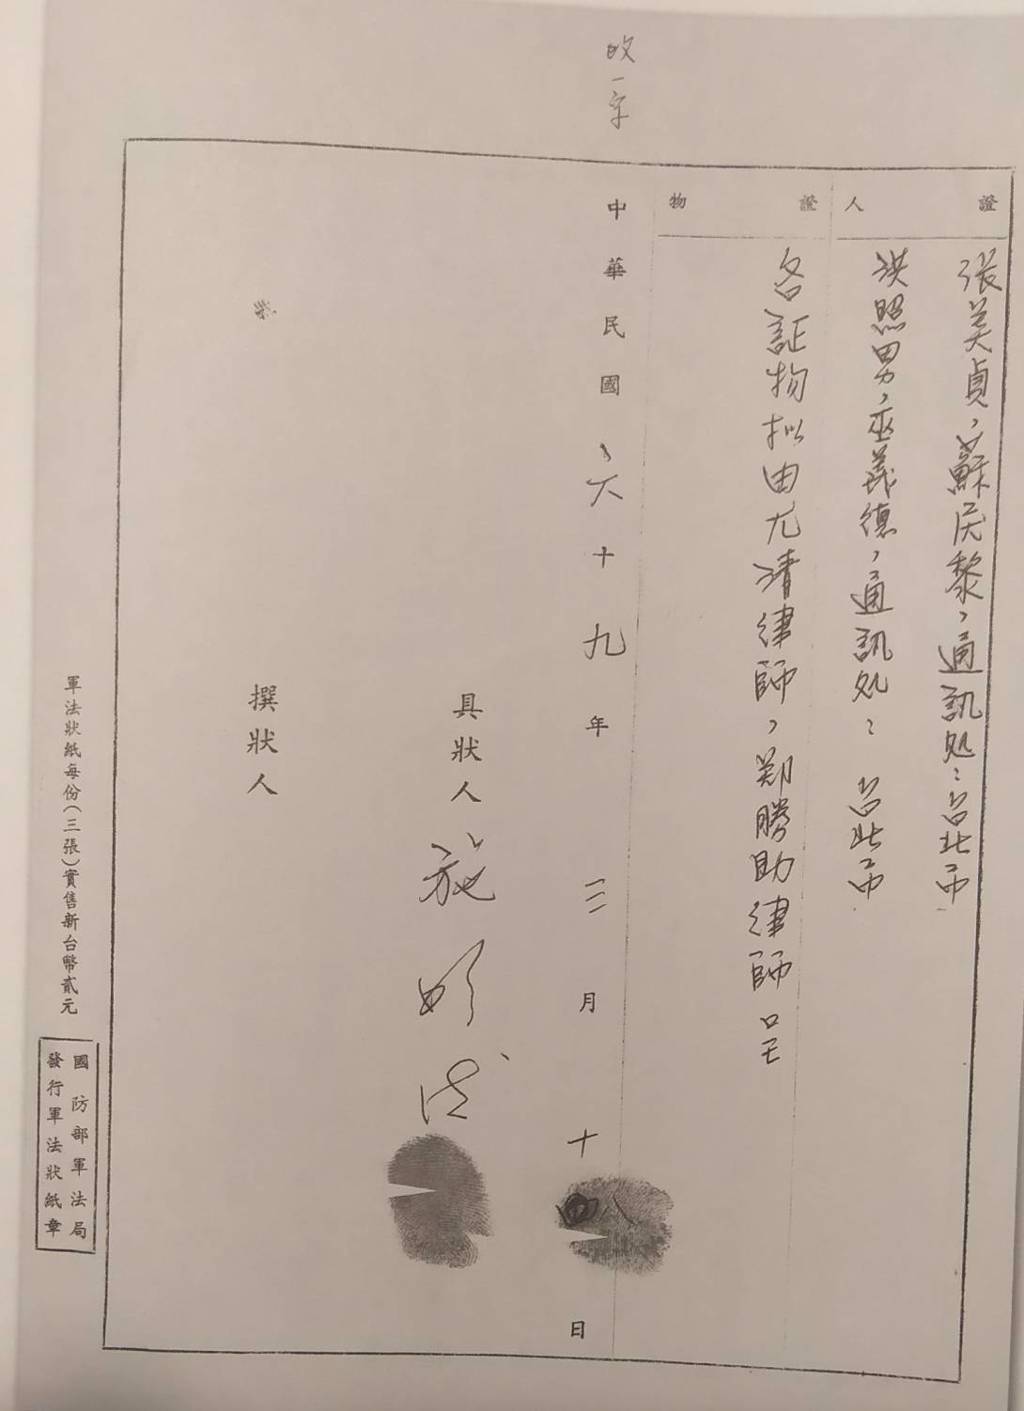 改一字
證人
張美貞，蘇民黎，通訊処：台北市
洪照男，巫義德，通訊処：台北市
證物
各証物拟由尤清律師，鄭勝助律師呈
中華民國六十九年三月十八日
具狀人 施明德
撰狀人
軍法狀紙每份（三張）實售新台幣貳元
國防部軍法局
發行軍法狀紙章